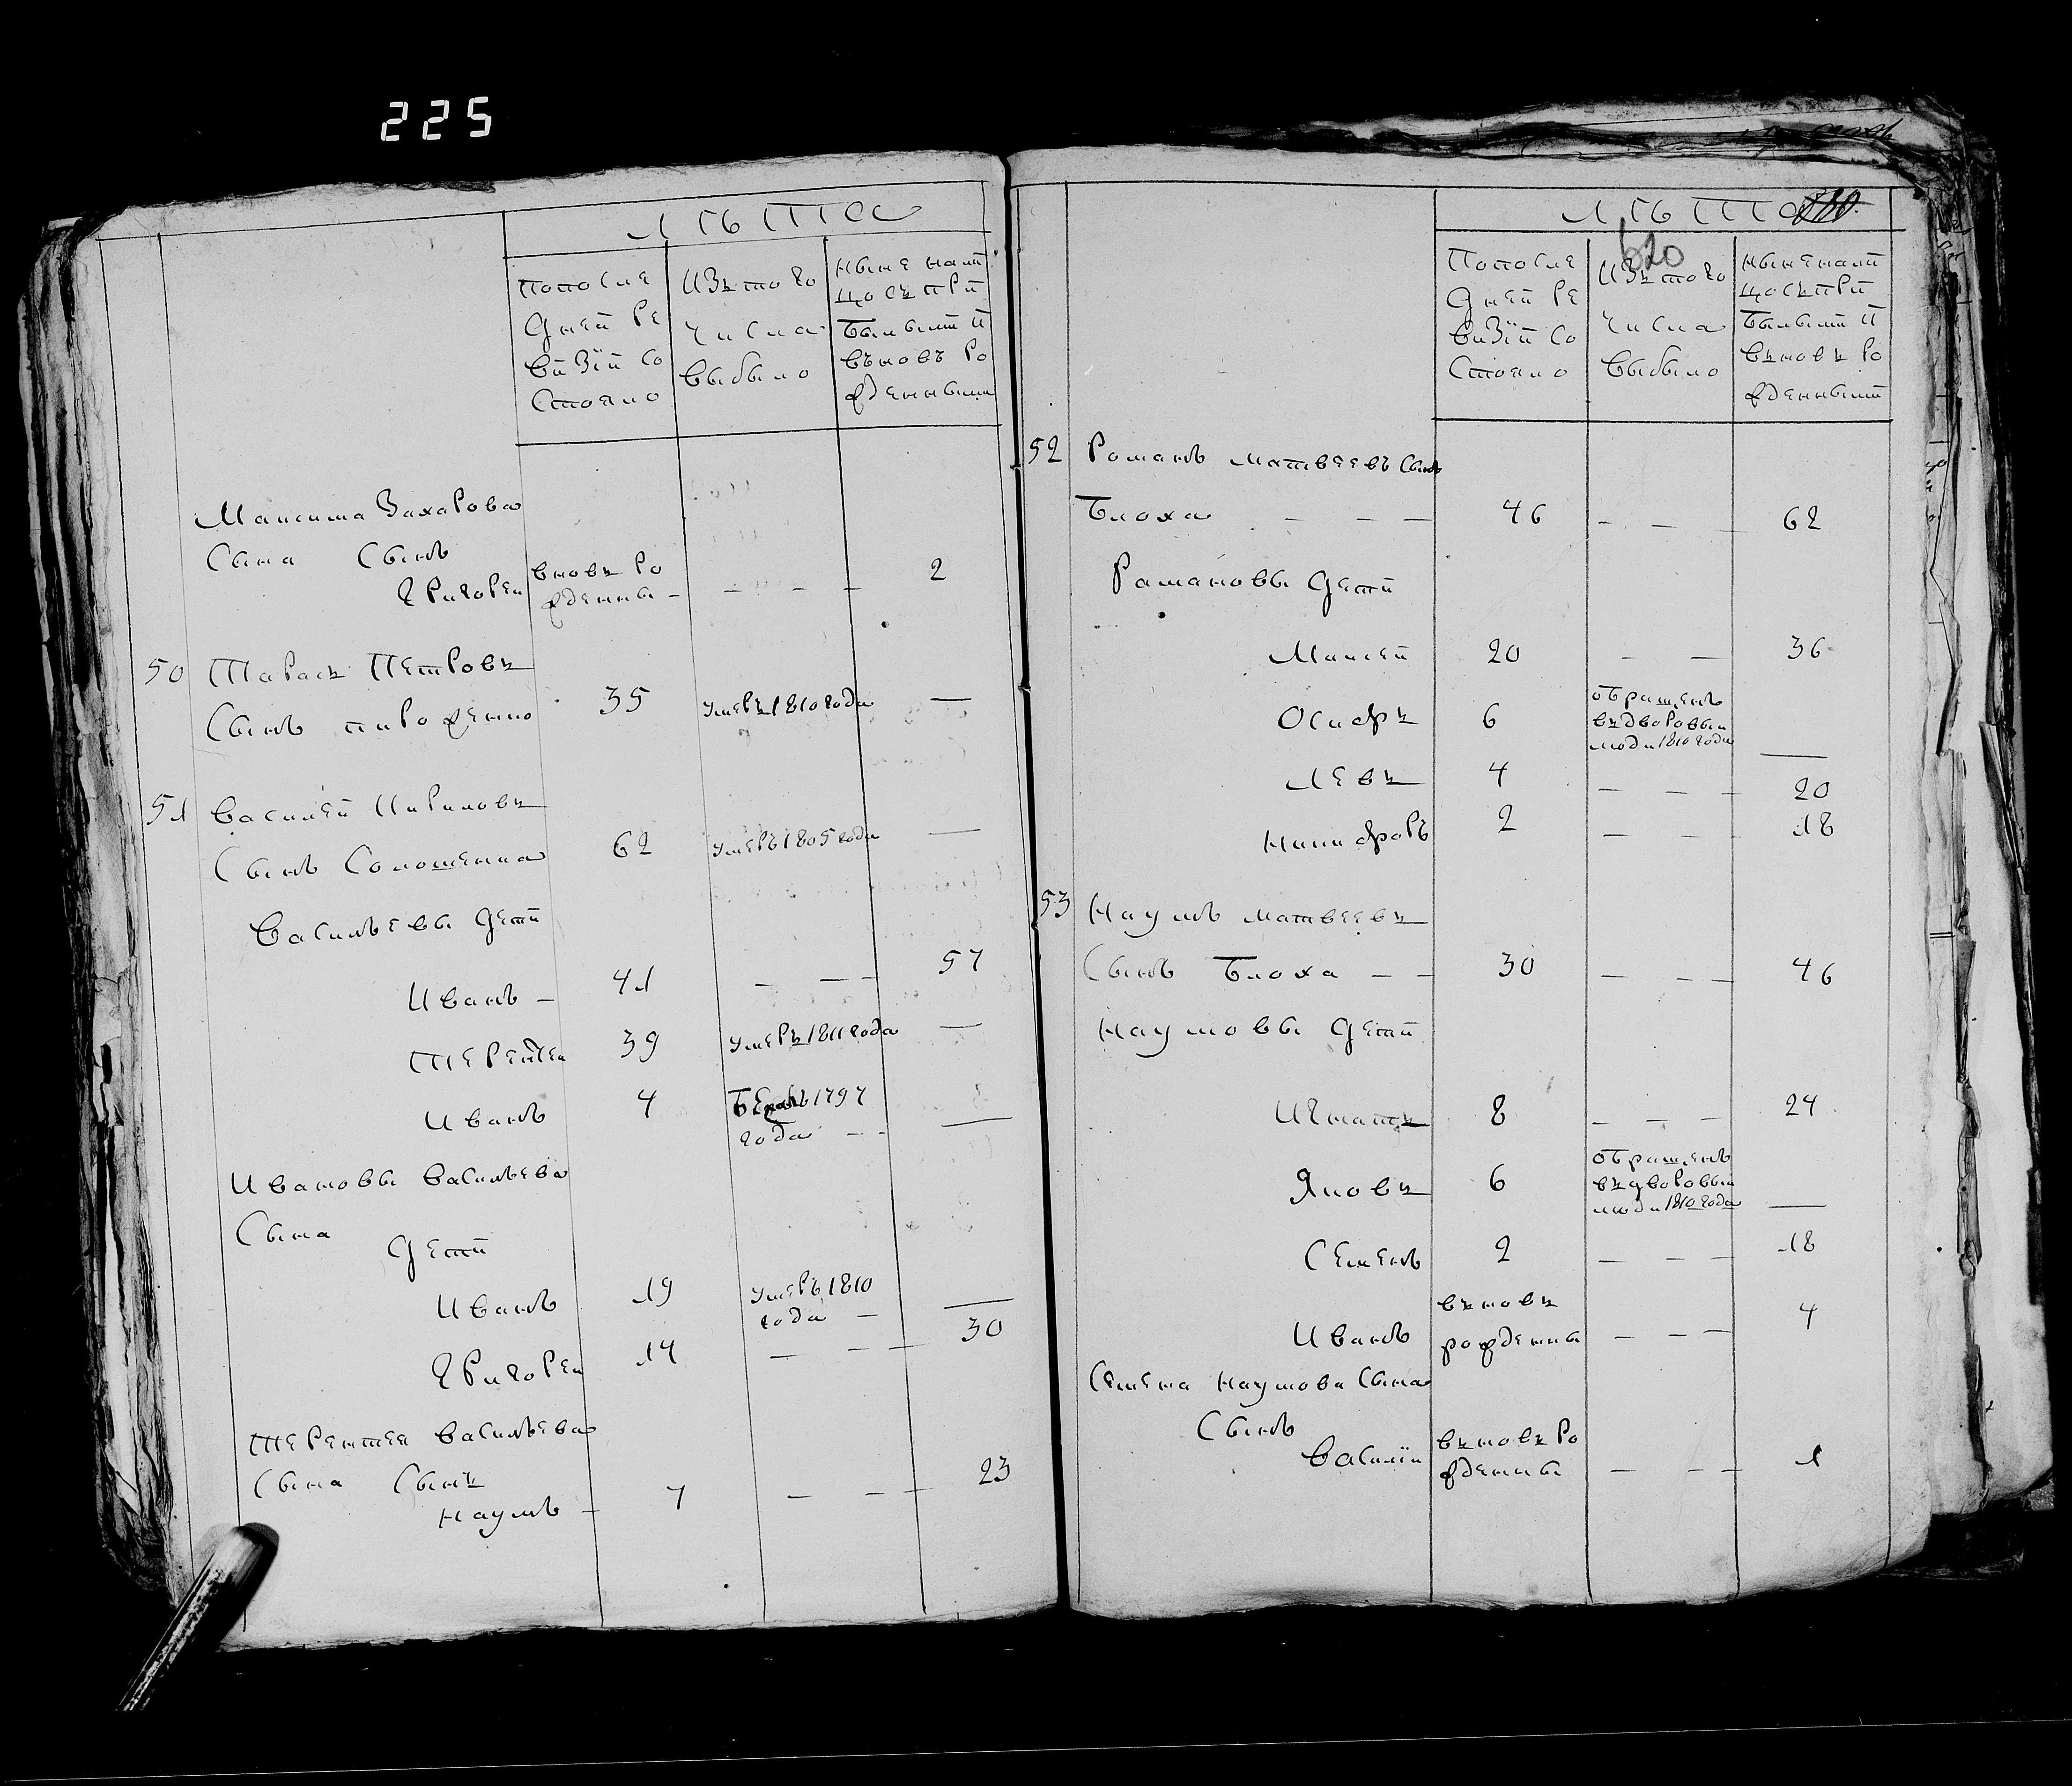 225
Лѣта
По после
дней ре
визїи со
стояло
Изъ того
числа
выбыло
Ныне налй
цо съ прй
былыми й
въновь ро
жденными
Максима Захарова
Сына Сынъ
Григореи вновь ро
жденны - - - - 2
50 Тарасъ Петровъ
Сынъ 35 умеръ 1810 года —
51 Василей Кириловъ
Сынъ Соломенка 62 умеръ 1805 года —
Васильевы дети
Иванъ - 41 - - - 57
Терентеи 39 умеръ 1811 года —
Иванъ 4 Бежалъ 1797
года - - —
Ивановы Васильева
Сына
дети
Иванъ 19 умеръ 1810
года - —
Григореи 14 - - - 30
Терентея Васильева
Сына Сынъ
Наумъ - 7 - - - 23
620
Лѣта
По после
дней ре
визїи со
стояло
Изъ того
числа
выбыло
Ныне налй
цо съ прй
былыми й
въновь ро
жденными
52 Романъ Матвеевъ Сынъ
Блоха - - - 46 - - - 62
Рамановы дети
Мокей 20 - - 36
Осифъ 6 обращенъ
въ дворовыи
люди 1810 года —
Левъ 4 - - - 20
Никифоръ 2 - - - 18
53 Наумъ Матвеевъ
Сынъ Блоха - - 30 - - - 46
Наумовы дети
Игнатъ 8 - - - 24
Яковъ 6 обращенъ
въ дворовыи
люди 1810 года —
Семенъ 2 - - - 18
Иванъ въновь
рожденны - - - 4
Семена Наумова Сына
Сынъ
Василїи въновь ро
жденны - - - 1